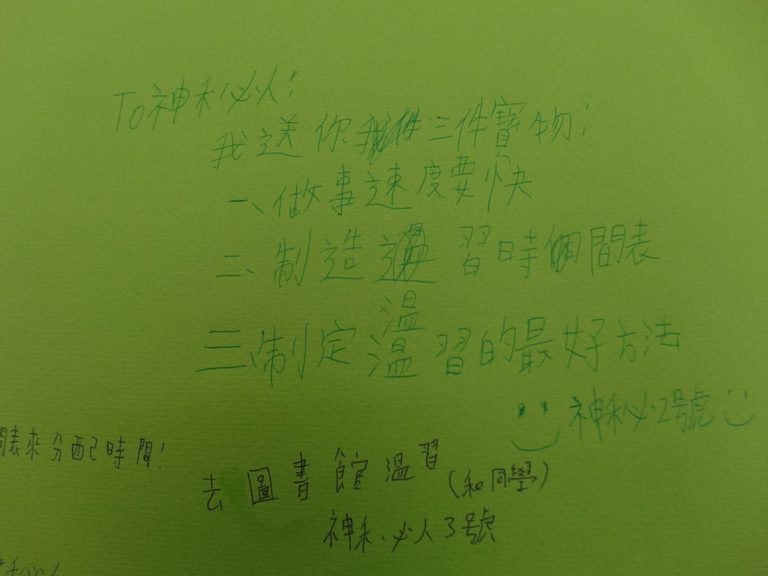 To神秘人:
我送你三件寶物:
一、做事速度要快
二、制造習時間表
溫
三、制定溫習的最好方法
神秘2號
間表來分配時間!
去圖書館溫習(和同學)
神秘人3號